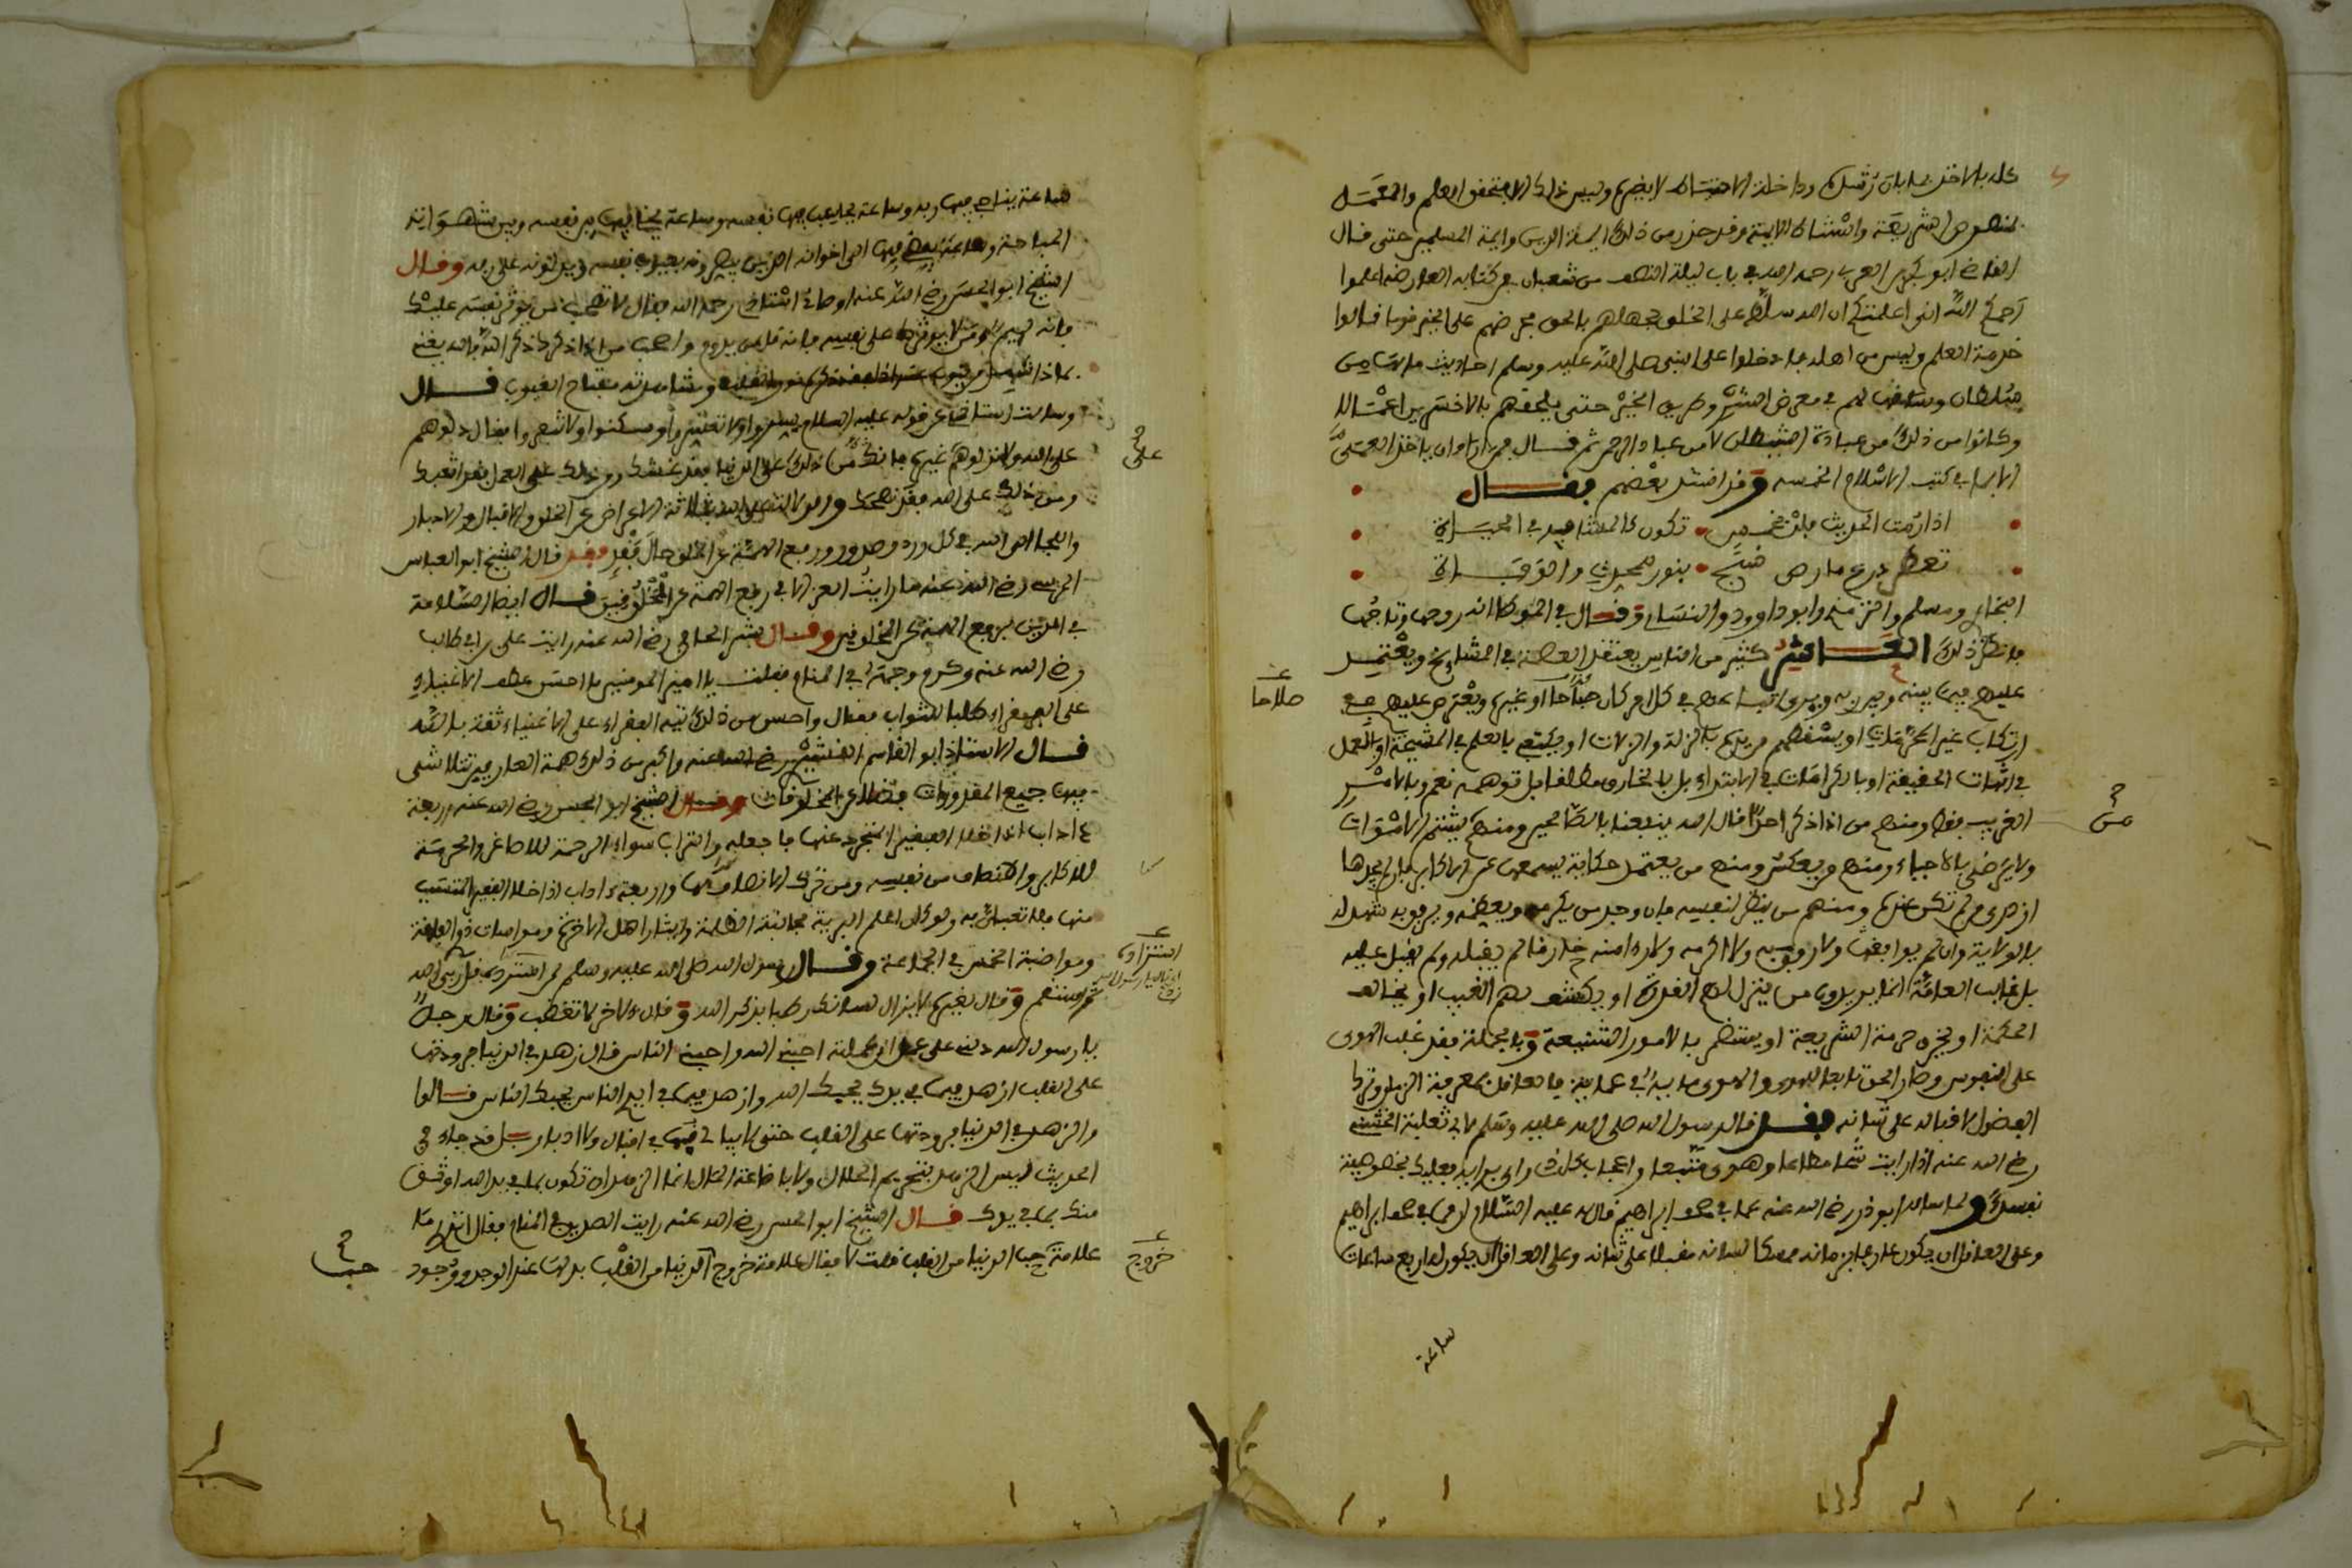 كله بالاخذ
وليس ذلك الا بتحقق العلم والعمل
بنصوص الشريعة واستثناء الايمة وقد حذر من ذلك ايمة الدين وايمة المسلمين حتى قال
القاضي ابو بكر بن العربي رحمه الله في باب ليلة النصف من شعبان من كتابه العارضة اعلموا
رحمكم الله اني اعلمتكم ان الله سلط على الخلق بجهلهم بالحق من ضمهم على الخير قوما قالوا
خدمة العلم وليس من اهله فادخلوا على النبي صلى الله عليه وسلم احاديث ما لها من
سلطان وساقها لهم في معرض الشر وطريق الخير حتى يلحقهم بالاخسرين اعمالا
وكانوا من ذلك من عبادة الشيطان لا من عباد الرحمن ثم قال فمن اراد ان ياخذ العمل
الا بما في كتب الاسلام الخمسة وقد انشد بعضهم فقال
اذا رمت الحديث فلذ بخمس تكون كالمشاهد في الحيـاة
بنور صحيح
البخاري ومسلم والترمذي وابو داوود والنسائي وقال في الموطا انه روحها وتاجها
فانظر ذلك العـاشر كثير من الناس يعتقد العصمة في المشايخ ويعتمد
عليهم فيما بينه وبين ربه ويرى اتباعهم في كل امر كان مباحا او غيره ويعترض عليهم مع
ارتكاب غير المحرمات او يسقطهم من يده بالزلة والزلات او يكتفي بالعلم في المشيخة او بالعمل
في اثبات الحقيقة او بالكرامات في الابتداء بل بالخارق مطلقا بل توهمه نعم وبالامر
الغريب فقط ومنهم من اذا ذكر احدا قال الله ينفعنا بالصالحين ومنهم يشتم الاموات
ولا يرضى بالاحياء ومنهم من يعكس ومنهم من يعتمد حكاية يسمعها عن الاكابر فان لم يجدها
ازدرى من لم تكن عنده ومنهم من ينظر لنفسه فان وجد من يكرمه ويعظمه ويرفق به شهد له
بالولاية وان لم يوافقه ولا رفق به ولا اكرمه ولا راى منه خارقا لم يقبله ولم يقبل عليه
بل غالب العامة انما يريدون من ينزل لهم القدرة او يكشف لهم الغيب او يخالف
الحكمة او يخرق حرمة الشريعة او يتظاهر بالامور الشنيعة وبالجملة فقد غلب الهوى
على النفوس وصار الحق تابعا للهوى
الفضول لاقباله على شانه فقد قال رسول الله صلى الله عليه وسلم لابي ثعلبة الخشني
رضي الله عنه اذا رايت شحا مطاعا وهوى متبعا واعجاب كل ذي راي برايه فعليك بخويصة
نفسك ولما سال ابو ذر رضي الله عنه عما في صحف ابراهيم قال له عليه السلام ان مما في صحف ابراهيم
وعلى العاقل ان يكون عارفا بزمانه ممسكا لسانه مقبلا على شانه وعلى العاقل ان يكون له اربع ساعات
ساعة
صلاحا
من
ساعة يناجي فيها ربه وساعة يحاسب فيها نفسه وساعة يخلي فيها بين نفسه وبين شهواته
المباحة وساعة يفضي فيها الى اخوانه الذين يبصرونه بعيوب نفسه ويدلونه على ربه وقال
الشيخ ابو الحسن رضي الله عنه اوصاني استاذي رحمه الله فقال لا تصحب من يوثر نفسه عليك
فانه لئيم ولا من يوثرك على نفسه فانه قل ما يدوم واصحب من اذا ذكر ذكر الله فالله يغني
به اذا شهد وينوب عنه اذا فقد ذكره نور القلوب ومشاهدته مفتاح الغيوب قـال
وسالت استاذي عن قوله عليه السلام يسروا ولا تعسروا وسكنوا ولا تنفروا فقال دلوهم
على الله ولا تدلوهم على غيره فان من دلك على الدنيا فقد غشك ومن دلك على العمل فقد اتعبك
ومن دلك على الله فقد نصحك والدلالة على الله بثلاثة الاعراض عن الخلق والاقبال والادبار
واللجا الى الله في كل ورد وصدور ورفع الهمة عن الخلق حال فقد قال الشيخ ابو العباس
المرسي رضي الله عنه ما رايت العز الا في رفع الهمة عن المخلوقين قال ايضا السلامة
في الدين برفع الهمة عن المخلوقين وقـال بشر الحافي رضي الله عنه رايت علي بن ابي طالب
رضي الله عنه وكرم وجهه في المنام فقلت يا امير المومنين ما احسن عطف الاغنياء
على الفقراء طلبا للثواب فقال واحسن من ذلك تيه الفقراء على الاغنياء ثقة بالله
قـال الاستاذ ابو القاسم القشيري رضي الله عنه واكبر من ذلك همة العارفين تتلاشى
فيها جميع المقدورات فضلا عن المخلوقات وقـال الشيخ ابو الحسن رضي الله عنه اربعة
ءاداب اذا خلا الفقير المتجرد عنها فاجعله والتراب سواء الرحمة للاصاغر والحرمة
للاكابر والانصاف من نفسه ومن ترك الانصاف لها واربعة ءاداب اذا خلا الفقير المتسبب
منها فلا تعبان به ولو كان اعلم البرية مجانبة الظلمة وايثار اهل الاخرة ومواساة ذوي الفاقة
ومواظبة الخمس في الجماعة وقـال رسول الله صلى الله عليه وسلم
وقال لغيره لا يزال لسانك رطبا بذكر الله وقال لاخر لا تغضب وقال رجل
يا رسول الله دلني على عمل ان عملته احبني الله واحبني الناس قال ازهد في الدنيا
على القلب ازهد فيما في يدك يحبك الله وازهد فيما في ايدي الناس يحبك الناس قـالوا
والزهد في الدنيا برودتها على القلب حتى لا يبالي بها في اقبال ولا ادبار بل قد جاء في
الحديث ليس الزهد بتحريم الحلال ولا باضاعة المال انما الزهد ان تكون بما في يد الله اوثق
منك بما في يدك قـال الشيخ ابو الحسن رضي الله عنه رايت الصديق في المنام فقال اتدري ما
علامة حب الدنيا من القلب قلت لا فقال علامة خروج الدنيا من القلب بذلها عند الوجد ووجود
على
خروج
حب